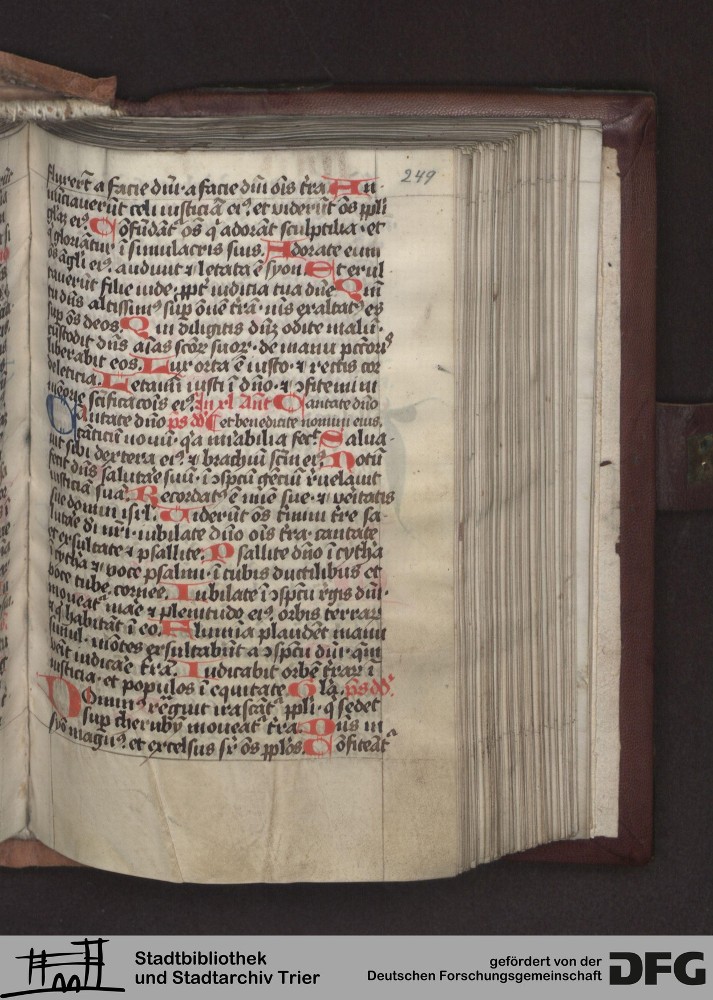 249
fluxerūt a facie dnī· a facie dnī oīs t̄ra An
nūciaverūt celi iusticiā eiꝰ· et viderūt oēs ppli
gl̄az eiꝰ. Cōfūdāt᷑ oēs q̄ adorāt sculptilia· et
q̄ gloriāt᷑ ī simulacris suis. Adorate eum
oēs āgli eiꝰ· audivit ⁊ letata ē syon. Et exul
taverūt filie iude· ꝓpt᷑ iudicia tua dn̄e Qm̄
tu dn̄s altissimꝰ suꝑ ōnē t̄rā· nīs exaltatꝰ es
suꝑ oēs deos Qui diligitis dūz odite malū·
custodit dn̄s aīas scōꝝ suoꝝ· de manu pctōrꝭ
liberabit eos. Lux orta ē iusto· ⁊ rectis cor
de leticia. Letamī iusti ī dn̄o· ⁊ ꝯfitemī ut
mēorie scīficacōis eiꝰ. Cantate dn̄o
Cantate dn̄o ps dd et benedicite nomini eius.
cāticū nouū· q̄a mirabilia fecᷓ Salua
uit sibi dextera eiꝰ· ⁊ brachiū scm̄ eiꝰ Notū
fecit dn̄s salutāe suū· ī ꝯspctū gēciū r̄uelauit
iusticiā suā. Recordatꝰ ē mīe sue· ⁊ vēitatis
sue domui isrl̄. Viderūt oēs t̄mini t̄re sa·
lutāe di nr̄i· iubilate dn̄o oīs t̄ra· cantate
et exsultate ⁊ psallite. Psallite dn̄o ī cytha
ī cytha ⁊ voce psalmi· ī tubis ductilibus et
voce tube cornee. Iubilate ī ꝯspctu r̄gis dn̄i·
moueat᷑ māe ⁊ plenitudo eiꝰ· orbis terraꝝ
⁊ q̄ habitāt ī eo. Flumīa plaudēt manu
simul· mōtes exsultabūt a ꝯspctu dn̄i· qm̄
veīt iudicāe t̄rā. Iudicabit orbē t̄raꝝ ī
iusticia· et populos ī equitate Gl̄a. ps dd.
Dominꝰ regnuit irascāt᷑ ppli· q̄ sedet
suꝑ cherubyn moueat᷑ t̄ra. Dn̄s in
syō magnꝰ· et excelsus sꝑ oēs ppl̄os. Cōfiteāt᷑
Stadtbibliothek
und Stadtarchiv Trier
gefördert von der
Deutschen Forschungsgemeinschaft
DFG